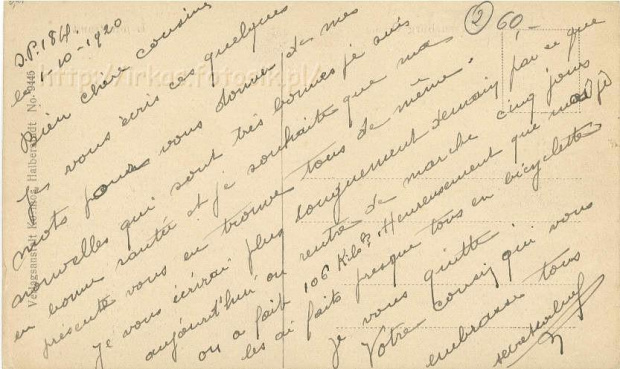 S.P. 184.
le 1-10-1920
Bien chers cousins
Je vous écris ces quelques
mots pour vous donner de mes
nouvelles qui sont très bonnes je suis
en bonne santée et je souhaite que ma
présente vous en trouve tous de même.
Je vous écrirai plus longuement demain par ce que
aujourd'hui on rentre de marche cinq jours
ou on a fait 106 Kilos. Heureusement que moi je
les ai faits presque tous en bicyclette
je vous quitte.
Votre cousin qui vous
embrasse tous
2
60-
Verlagsanstalt Halberstadt No. 9445